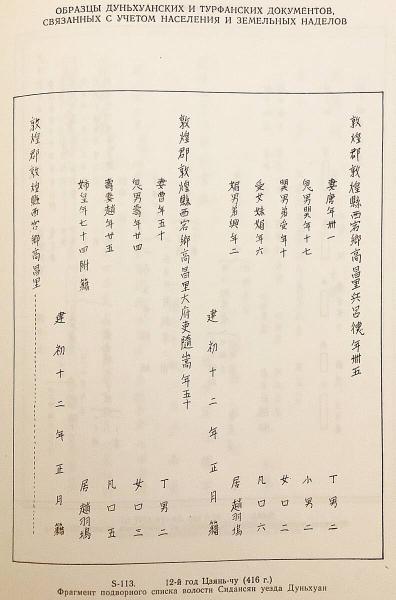 ОБРАЗЦЫ ДУНЬХУАНСКИХ И ТУРФАНСКИХ ДОКУМЕНТОВ,
СВЯЗАННЫХ С УЧЕТОМ НАСЕЛЕНИЯ И ЗЕМЕЛЬНЫХ НАДЕЛОВ
敦煌郡敦煌縣西宕鄉高昌里兵呂德年卌五
妻唐年卌一 丁男二
息男年十七 小男二
男弟受年十 女口二
受女妹媚年六 凡口六
媚男弟興年二 居趙羽塢
建初十二年正月籍
敦煌郡敦煌縣西宕鄉高昌里大府吏隨嵩年五十
妻曹年五十 丁男二
息男壽年廿四 女口三
壽妻趙年廿五 凡口五
姊皇年七十四附籍 居趙羽塢
建初十二年正月籍
敦煌郡敦煌縣西宕鄉高昌里
S-113. 12-й год Цзянь-чу (416 г.)
Фрагмент подворного списка волости Сидансян уезда Дуньхуан